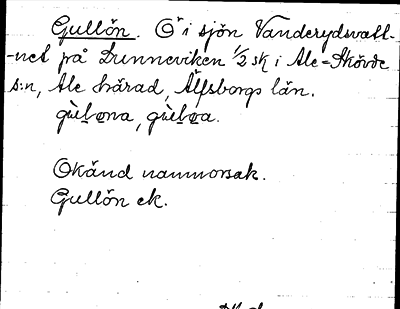 Gullön. Ö i sjön Vanderydsvatt-
-net på Dunneviken 1/2 sk i Ale-Skövde
s:n, Ale härad, Älfsborgs län.
Okänd namnorsak.
Gullön ek.